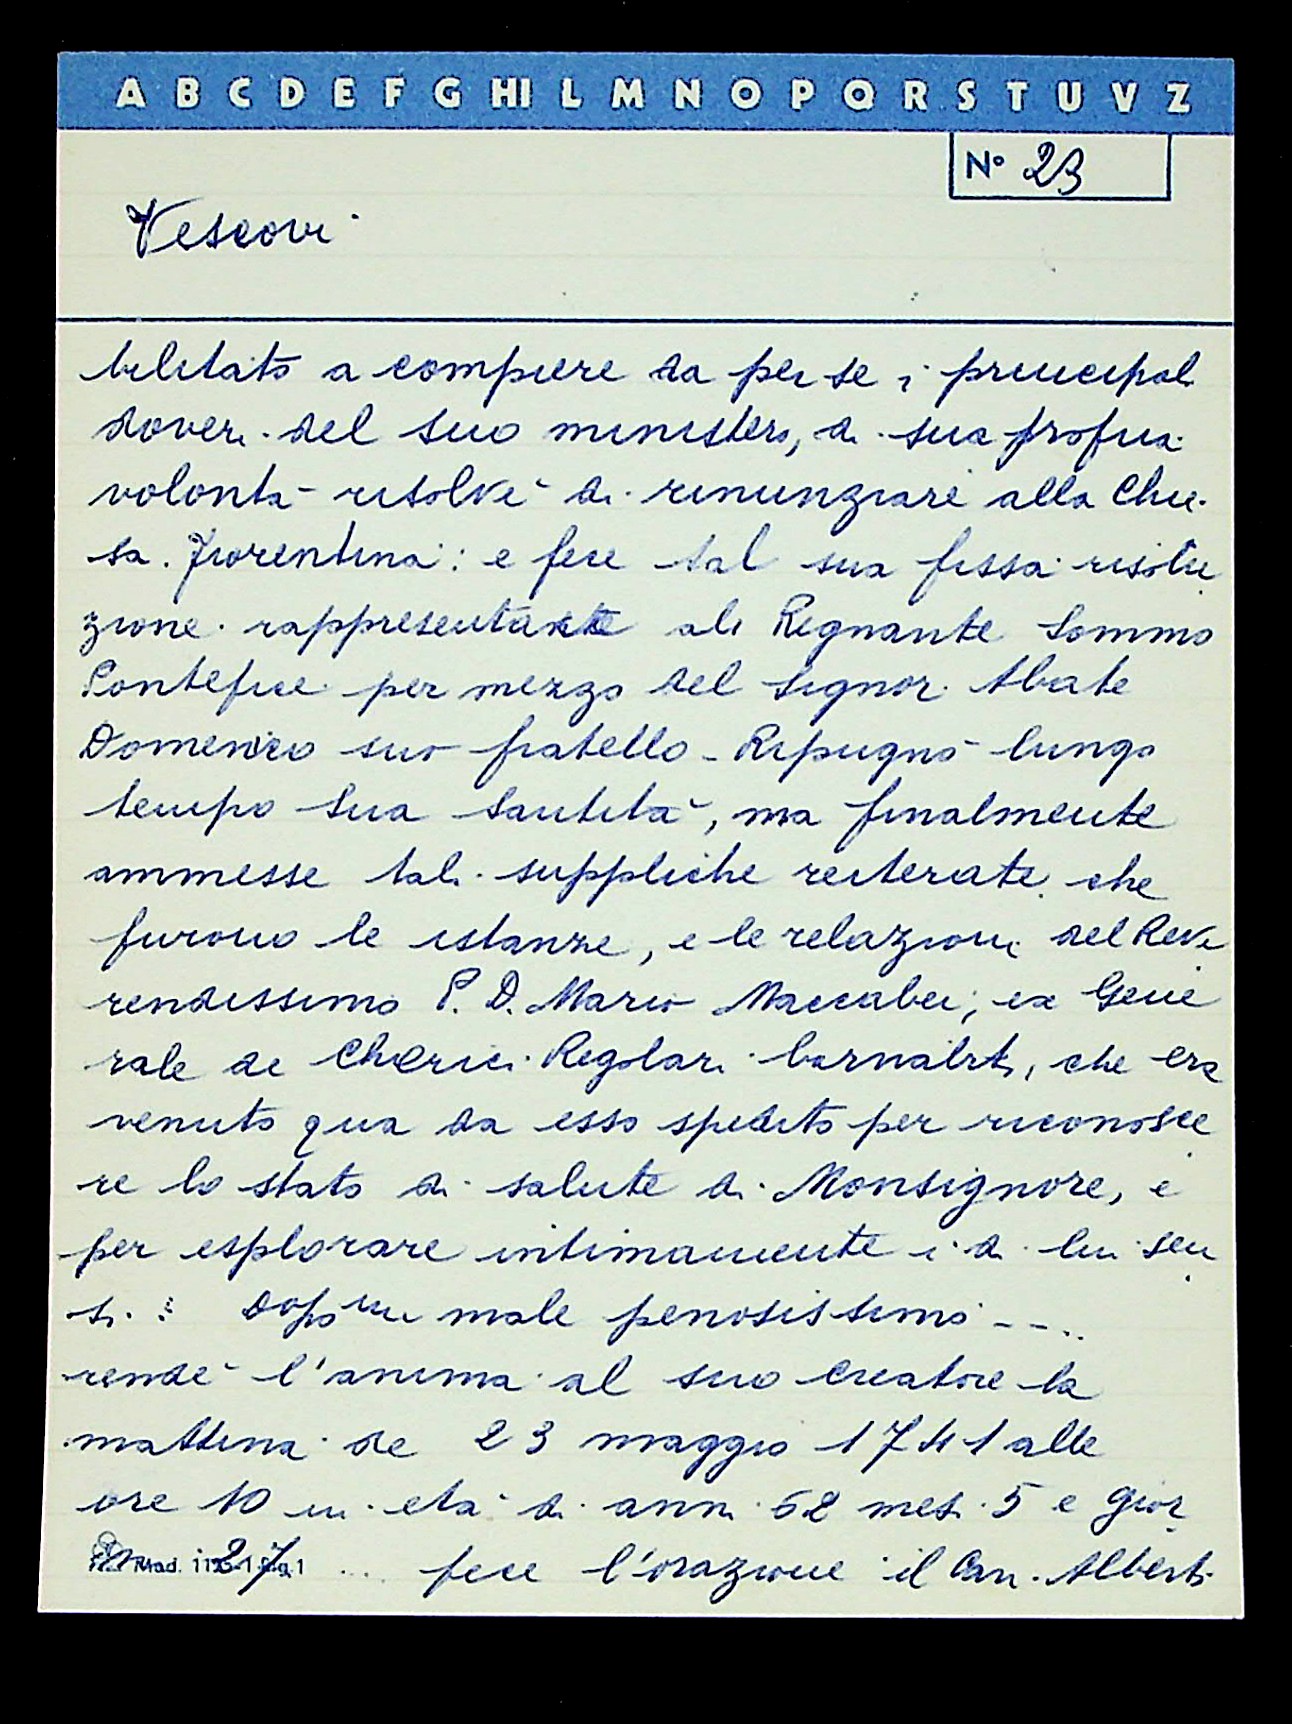 A B C D E F G HI L M N O P Q R S T U V Z
N° 23
Vescovi
bilitato a compiere da per se i principali
doveri del suo ministero, di sua propria
volontà risolvè di rinunziare alla Chie-
sa Fiorentina: e fece tal sua fissa risolu
zione rappresentante al Regnante Sommo
Pontefice per mezzo del Signor Abate
Domenico suo fratello - Ripugnò lungo
tempo Sua Santità, ma finalmente
ammesse tali suppliche reiterate che
furono le istanze, e le relazioni del Reve
rendissimo P. D. Mario Maccabei, ex Gene
rale de Cherici Regolari barnabiti, che era
venuto qua da esso spedito per riconosce
re lo stato di salute di Monsignore, e
per esplorare intimamente i di lui sen
si. : Dopo un male penosissimo - - ..
rendè l'anima al suo Creatore la
mattina de 23 maggio 1741 alle
ore 10 in età di anni 62 mesi 5 e gior
ni 27 ... fece l'orazione il Can. Alberti